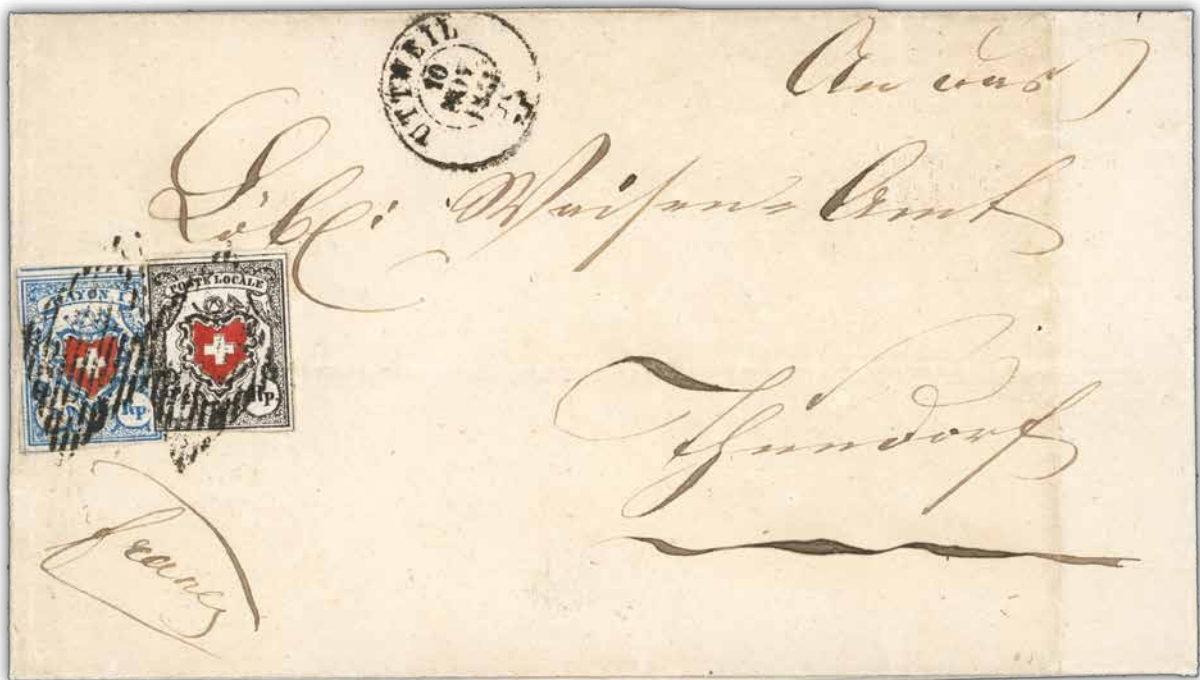 UTTWEIL
10
An das
Löbl: Waisen-Amt
Thundorf
RAYON I
Rp.
POSTE LOCALE
Rp.
franco